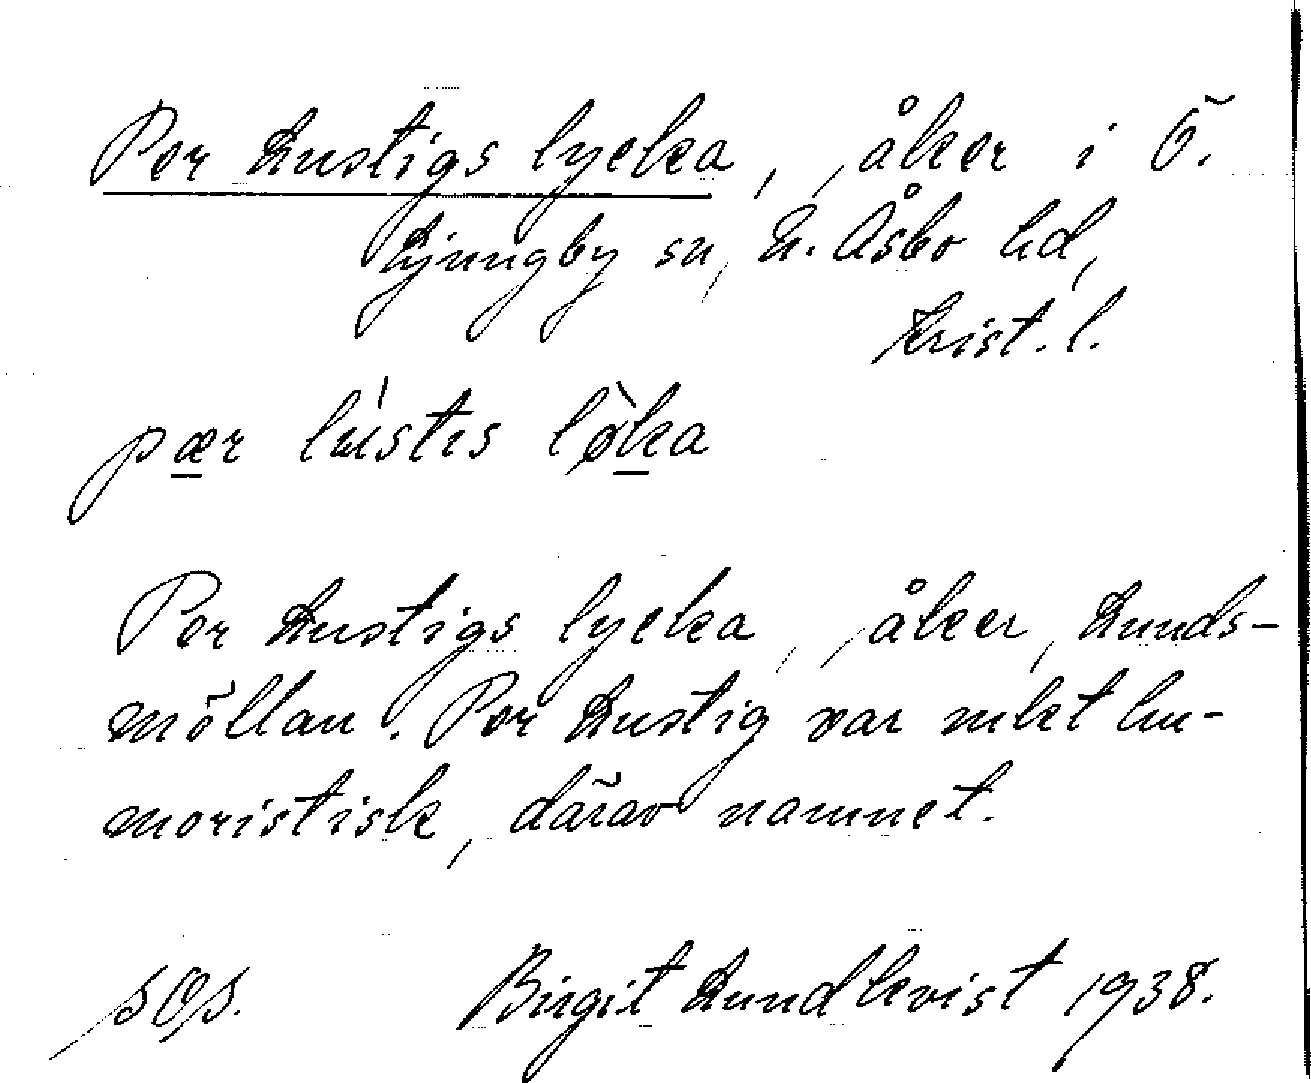 Per Lustigs lycka, åker i Ö.
Ljungby sn, N. Åsbo hd,
Krist. l.
pær lústis lø̀ka
Per Lustigs lycka, åker, Lunds-
möllan. Per Lustig var mkt hu-
moristisk, därav namnet.
Birgit Lundkvist 1938.